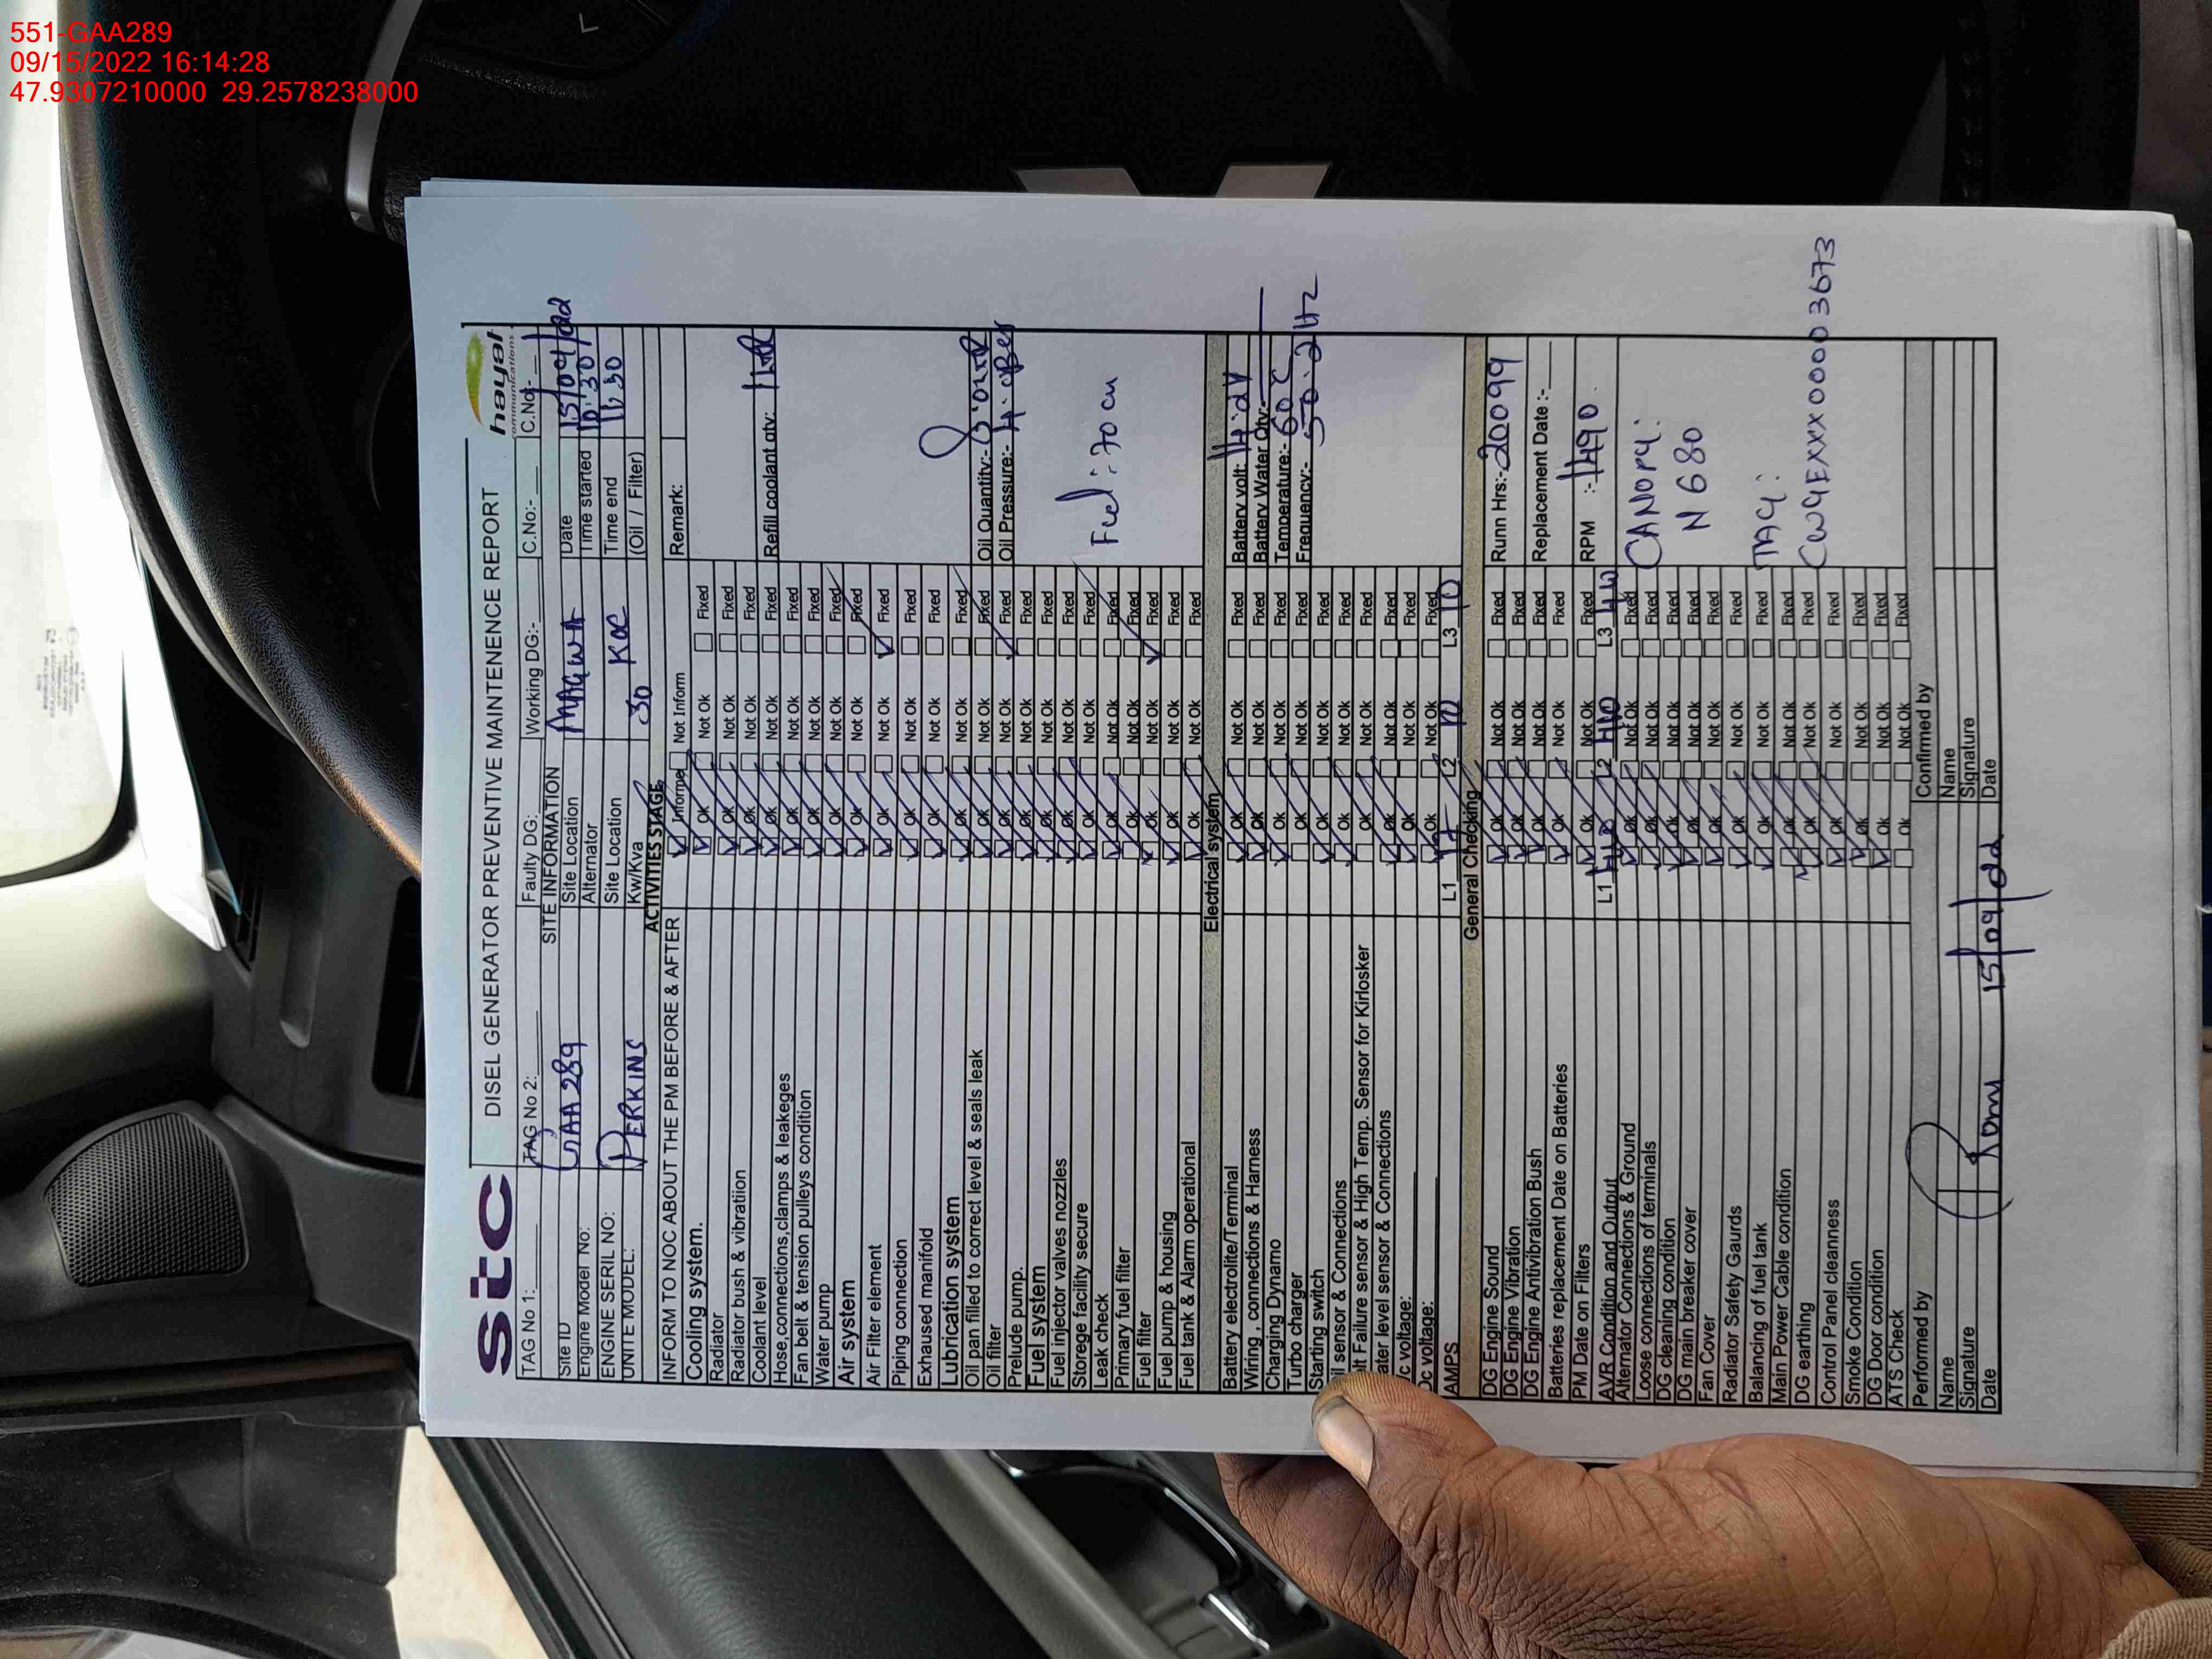 551-GAA289
09/15/2022 16:14:28
47.9307210000 29.2578238000
stc
DISEL GENERATOR PREVENTIVE MAINTENENCE REPORT
hayat
communications
TAG No 1: TAG No 2: Faulty DG: Working DG:- C.No:- C.No:-
SITE INFORMATION
Site ID GAA289 Site Location MAGWA Date 15/09/22
Engine Model No: Alternator Time started 10:30
ENGINE SERIL NO: PERKINS Site Location KOC Time end 11,30
UNITE MODEL: Kw/Kva 30 (Oil / Filter)
ACTIVITIES STAGE
INFORM TO NOC ABOUT THE PM BEFORE & AFTER Informed Not Inform Remark:
Cooling system. Ok Not Ok Fixed
Radiator Ok Not Ok Fixed
Radiator bush & vibratiion Ok Not Ok Fixed
Coolant level Ok Not Ok Fixed Refill coolant qty:
Hose,connections,clamps & leakeges Ok Not Ok Fixed
Fan belt & tension pulleys condition Ok Not Ok Fixed
Water pump Ok Not Ok Fixed
Air system Ok Not Ok Fixed
Air Filter element Ok Not Ok Fixed
Piping connection Ok Not Ok Fixed
Exhaused manifold Ok Not Ok Fixed
Lubrication system Ok Not Ok Fixed
Oil pan filled to correct level & seals leak Ok Not Ok Fixed Oil Quantity:-
Oil filter Ok Not Ok Fixed Oil Pressure:-
Prelude pump. Ok Not Ok Fixed
Fuel system Ok Not Ok Fixed
Fuel injector valves nozzles Ok Not Ok Fixed
Storege facility secure Ok Not Ok Fixed
Leak check Ok Not Ok Fixed Fuel: 70 cm
Primary fuel filter Ok Not Ok Fixed
Fuel filter Ok Not Ok Fixed
Fuel pump & housing Ok Not Ok Fixed
Fuel tank & Alarm operational Ok Not Ok Fixed
Electrical system
Battery electrolite/Terminal Ok Not Ok Fixed Battery volt: 14.2V
Wiring , connections & Harness Ok Not Ok Fixed Battery Water Qty:-
Charging Dynamo Ok Not Ok Fixed Temperature:- 60 C
Turbo charger Ok Not Ok Fixed Frequency:- 50.2 Hz
Starting switch Ok Not Ok Fixed
il sensor & Connections Ok Not Ok Fixed
lt Failure sensor & High Temp. Sensor for Kirlosker Ok Not Ok Fixed
ater level sensor & Connections Ok Not Ok Fixed
c voltage: Ok Not Ok Fixed
Dc voltage: Ok Not Ok Fixed
AMPS L1 L2 10 L3 10
General Checking
DG Engine Sound Ok Not Ok Fixed Runn Hrs:- 20099
DG Engine Vibration Ok Not Ok Fixed
DG Engine Antivibration Bush Ok Not Ok Fixed Replacement Date :-
Batteries replacement Date on Batteries Ok Not Ok Fixed
PM Date on Filters Ok Not Ok Fixed RPM :- 1490
AVR Condition and Output L1 L2 L3
Alternator Connections & Ground Ok Not Ok Fixed CANOPY:
Loose connections of terminals Ok Not Ok Fixed
DG cleaning condition Ok Not Ok Fixed N 680
DG main breaker cover Ok Not Ok Fixed
Fan Cover Ok Not Ok Fixed
Radiator Safety Gaurds Ok Not Ok Fixed TAG:
Balancing of fuel tank Ok Not Ok Fixed
Main Power Cable condition Ok Not Ok Fixed CWGEXXX00003673
DG earthing Ok Not Ok Fixed
Control Panel cleanness Ok Not Ok Fixed
Smoke Condition Ok Not Ok Fixed
DG Door condition Ok Not Ok Fixed
ATS Check Ok Not Ok Fixed
Performed by Confirmed by
Name Name
Signature Signature
Date 15/09/22 Date